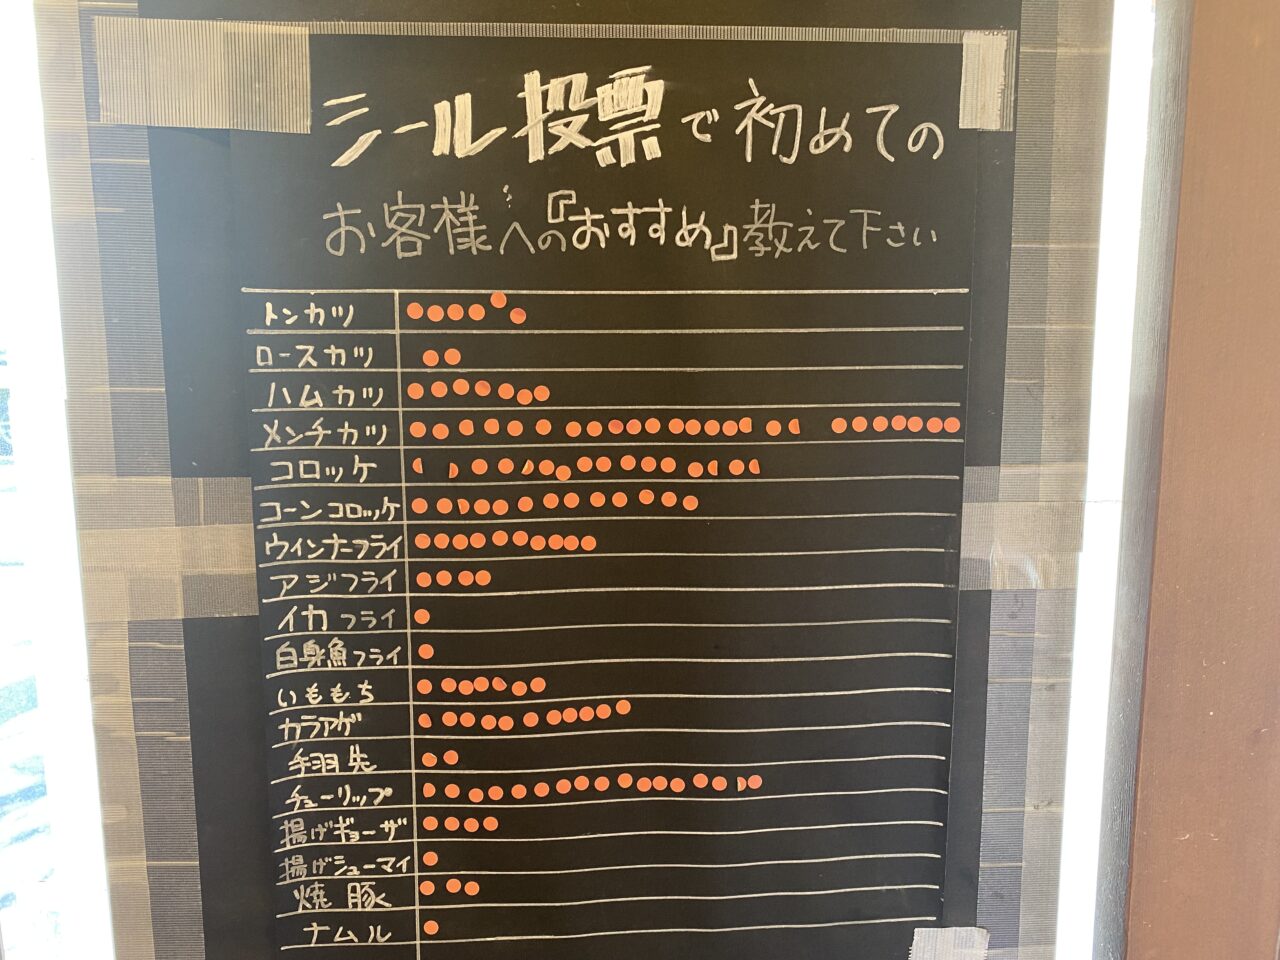 シール投票で初めての
お客様への『おすすめ』教えて下さい
トンカツ
ロースカツ
ハムカツ
メンチカツ
コロッケ
コーンコロッケ
ウインナーフライ
アジフライ
イカフライ
白身魚フライ
いももち
カラアゲ
手羽先
チューリップ
揚げギョーザ
揚げシューマイ
焼豚
ナムル